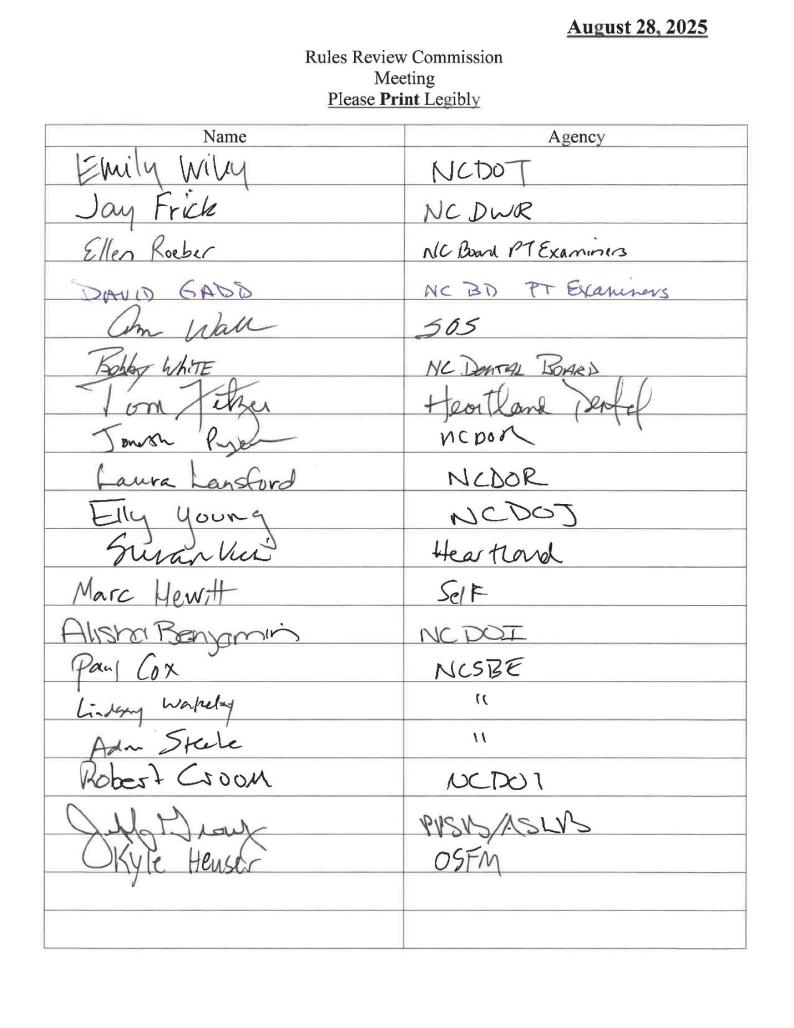 August 28, 2025
Rules Review Commission
Meeting
Please Print Legibly
Name Agency
Emily Wiky NCDOT
Jay Frick NC DWR
Ellen Roeber NC Board PT Examiners
DAVID GADD NC BD PT Examiners
Ann Wall SOS
Bobby WHITE NC DENTAL BOARD
Tom Fetzer Heartland Dental
NCDOR
Laura Lansford NCDOR
Elly Young NCDOJ
Susan Heartland
Marc Hewitt Self
Alisha Benjamin NCDOI
Paul Cox NCSBE
Lindsey Wakely "
Adam Steele "
Robert Croom NCDOI
Jeff Gray PPSB/ASLVB
Kyle Heuser OSFM